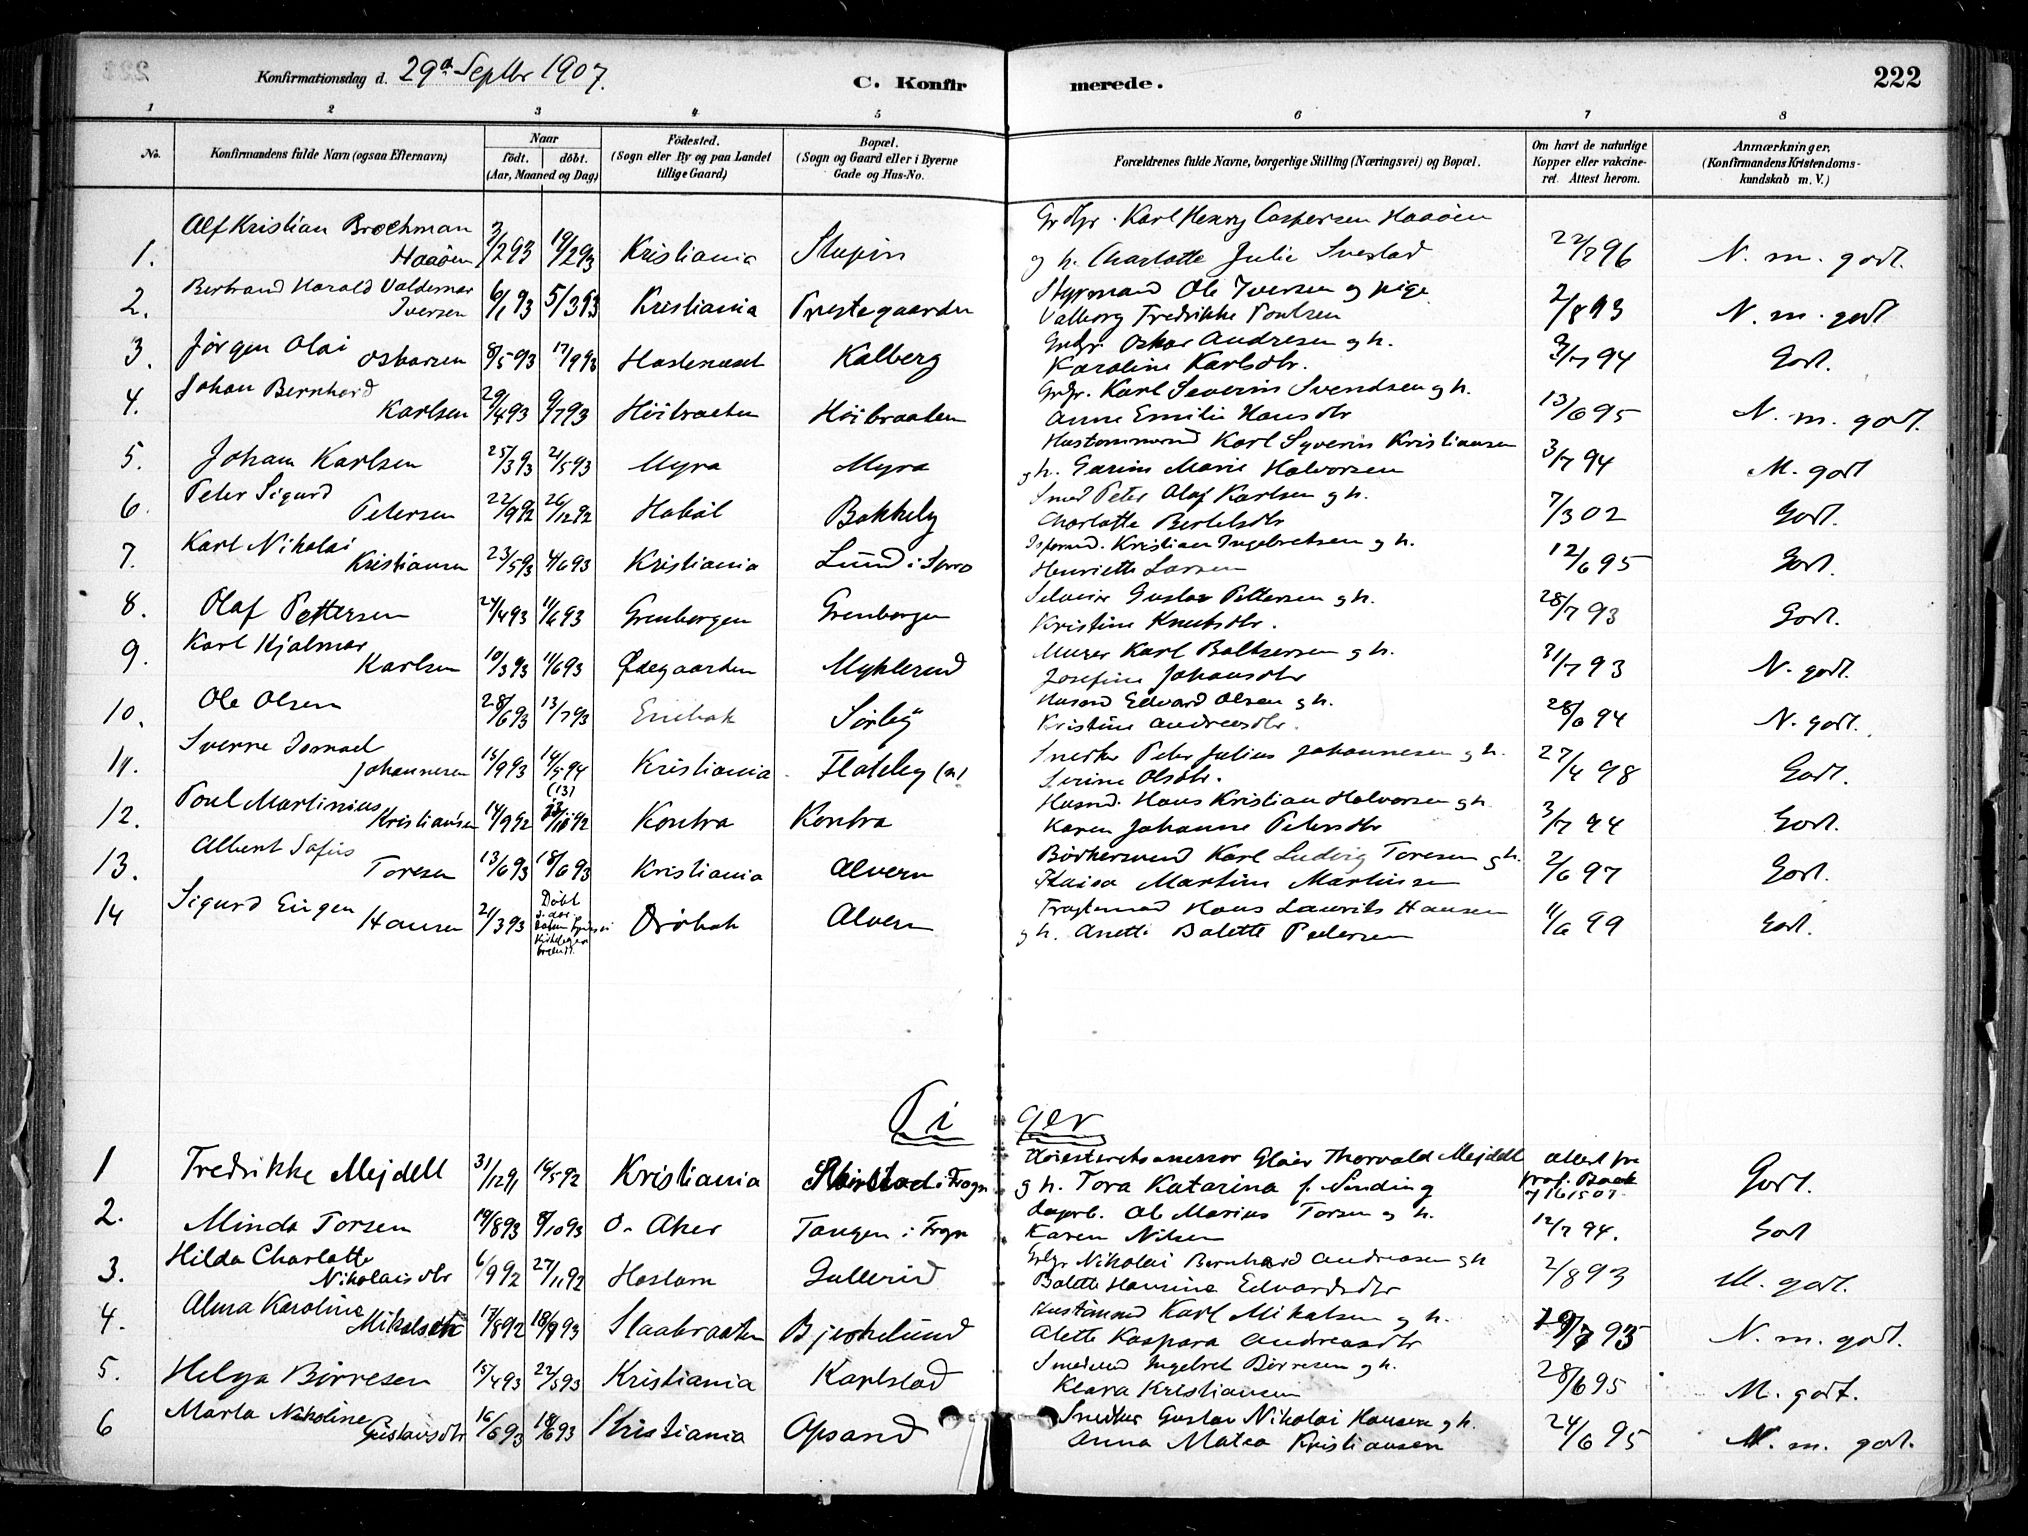 Konfirmationsdag d. 29de Septbr 1907.
C. Konfir merede.
222
1 2 3 4 5 6 7 8
No.
Konfirmandens fulde Navn (ogsaa Efternavn)
Naar
födt. döbt.
(Aar, Maaned og Dag)
Födested.
(Sogn eller By og paa Landet
tillige Gaard)
Bopæl.
(Sogn og Gaard eller i Byerne
Gade og Hus-No.
Forældrenes fulde Navne, borgerlige Stilling (Næringsvei) og Bopæl.
Om havt de naturlige
Kopper eller vakcine-
ret. Attest herom.
Anmærkninger.
(Konfirmandens Kristendoms-
kundskab m. V.)
1. Alf Kristian Brochman Haaöen 3/2 93 19/2 93 Kristiania Stupin Grdbr. Karl Henry Caspersen Haaöen
og h. Charlotte Julie Svestad 22/7 96 N. m. godt.
2. Bertrand Harald Valdemar Iversen 6/1 93 5/3 93 Kristiania Prestegaarden Styrmand Ole Iversen og pige
Valborg Fredrikke Poulsen 2/8 93 N. m. godt
3. Jörgen Olai Oskarsen 8/5 93 17/9 93 Kalberg Grdbr. Oskar Andresen og h.
Karoline Karlsdtr. 3/7 94 Godt.
4. Johan Bernhard Karlsen 29/4 93 9/7 93 Höibraaten Höibraaten Grdbr. Karl Severin Svendsen og h.
Anne Emilie Hansdtr 13/6 95 N. m. godt.
5. Johan Karlsen 25/3 93 21/5 93 Myra Myra Hustømmermd Karl Syverin Kristiansen
og h. Marie Halvorsen 3/7 94 M. godt
6. Peter Sigurd Petersen 22/9 92 26/12 92 Haböl Bakkely Smed Peter Olaf Karlsen og h.
Charlotte Bertelsdtr 7/3 02 Godt.
7. Karl Nikolai Kristiansen 23/5 93 4/6 93 Kristiania Lund i Kristian Ingebretsen og h.
Henriette Larsen 12/6 95 Godt.
8. Olaf Pettersen 24/4 93 11/6 93 Grenborgen Grenborgen Seleier Gustav Pettersen og h.
Kristine Knutsdtr. 28/7 93 Godt.
9. Karl Hjalmar Karlsen 10/3 93 11/6 93 Ødegaarden Myklerud Murer Karl Baltzersen og h.
Josefine Johansdtr 31/7 93 N. godt.
10. Ole Olsen 28/6 93 13/7 93 Enebak Sörby Husmd Edvard Olsen og h.
Kristine Andreasdtr. 28/6 94 N. godt.
11. Sverre Ismael Johannesen 15/9 93 14/5 94 Kristiania Flateby (n) Snedker Peter Julius Johannesen og h.
Serine Olsdtr. 27/4 98 Godt.
12. Poul Martinius Kristiansen 14/9 92 (13) Kontra Kontra Husmd. Hans Kristian Halvorsen og h.
Karen Johanne Petersdtr 3/7 94 Godt.
13. Albert Sofus Toresen 13/6 93 18/6 93 Kristiania Alvern Bödkersvend Karl Ludvig Toresen og h.
Martine Martinsen 2/6 97 Godt.
14 Sigurd Eugen Hansen 21/3 93 Döbt Dröbak Alvern Fragtemand Hans Laurits Hansen
og h. Anette Bolette Pedersen 11/6 99 Godt.
Piger
1 Fredrikke Mejdell 31/12 91 16/5 92 Kristiania i Frogn Höiesteretsassessor Glöer Thorvald Mejdell
og h. Tora Katarina f. Sinding Attest fra
Prof. Boeck
Godt.
2. Minda Torsen 19/8 93 8/10 93 Ö. Aker Tangen i Frogn Ole Marius Torsen og h.
Karen Nilsen 12/7 94. Godt
3. Hilda Charlotte Nikolaisdtr 6/9 92 27/11 92 Haslum Gullerud Grdbr Nikolai Bernhard Andreasen og h
Bolette Hansine Edvardsdtr 2/8 93 M. godt.
4. Alma Karoline Mikalsen 17/8 92 18/9 93 Slaabraaten Bjerkelund Karl Mikalsen og h.
Alette Kaspara Andreasdtr 93 N. m. godt.
5. Helga Börresen 15/4 93 22/5 93 Kristiania Karlstad Smedsvend Ingebret Börresen og h.
Klara Kristiansen 28/6 95 M. godt.
6 Marta Nikoline Gustavsdtr 16/6 93 18/6 93 Kristiania Opsand Snedker Gustav Nikolai Hansen og h.
Anna Matea Kristiansen 24/6 95 N. m. godt.